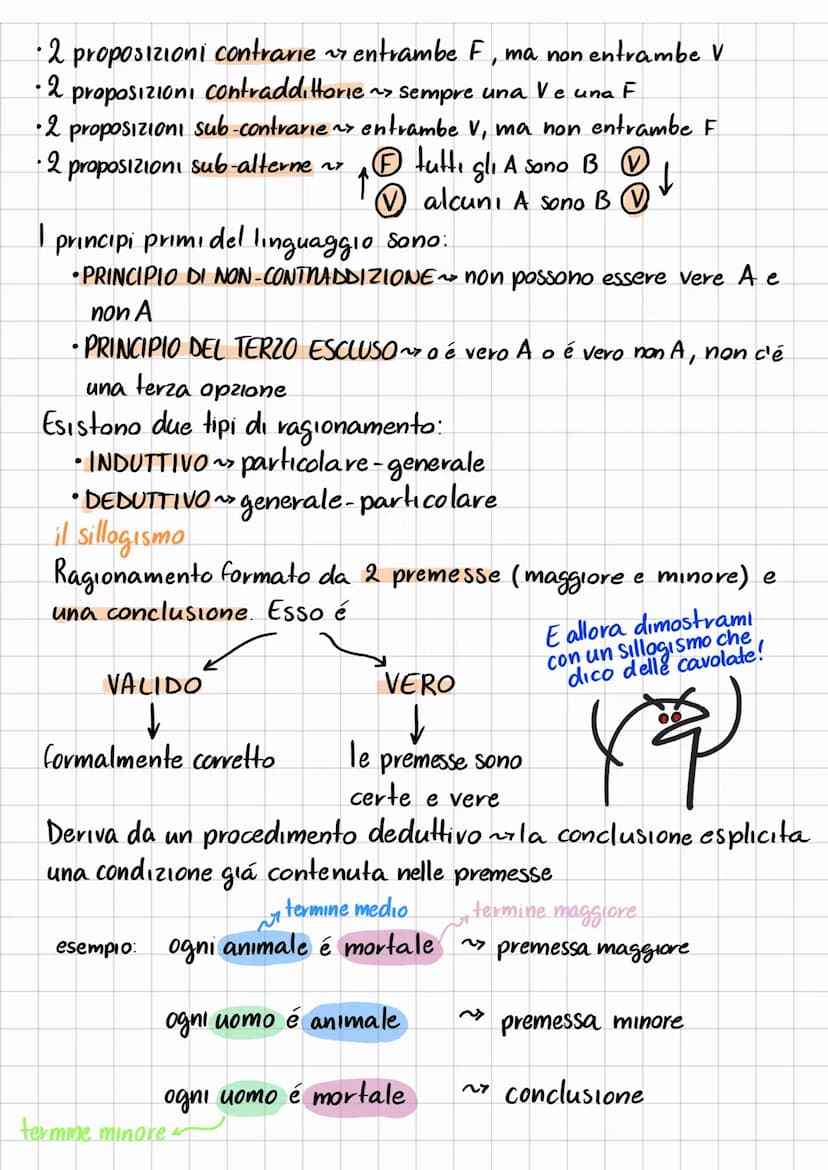 · 2 proposizioni contrarie ~> entrambe F, ma non entrambe V
· 2 proposizioni contraddittorie ~> sempre una V e una F
· 2 proposizioni sub-contrarie ~> entrambe V, ma non entrambe F
· 2 proposizioni sub-alterne ~> ↑ F tutti gli A sono B V ↓
V alcuni A sono B V
I principi primi del linguaggio sono:
· PRINCIPIO DI NON-CONTRADDIZIONE ~> non possono essere vere A e
non A
· PRINCIPIO DEL TERZO ESCLUSO ~> o é vero A o é vero non A, non c'é
una terza opzione
Esistono due tipi di ragionamento:
· INDUTTIVO ~> particolare-generale
· DEDUTTIVO ~> generale-particolare
il sillogismo
Ragionamento formato da 2 premesse (maggiore e minore) e
una conclusione. Esso é
E allora dimostrami
con un sillogismo che
dico delle cavolate!
VALIDO VERO
↓ ↓
formalmente corretto le premesse sono
certe e vere
Deriva da un procedimento deduttivo ~> la conclusione esplicita
una condizione giá contenuta nelle premesse
termine medio termine maggiore
esempio: ogni animale é mortale ~> premessa maggiore
ogni uomo é animale ~> premessa minore
ogni uomo é mortale ~> conclusione
termine minore